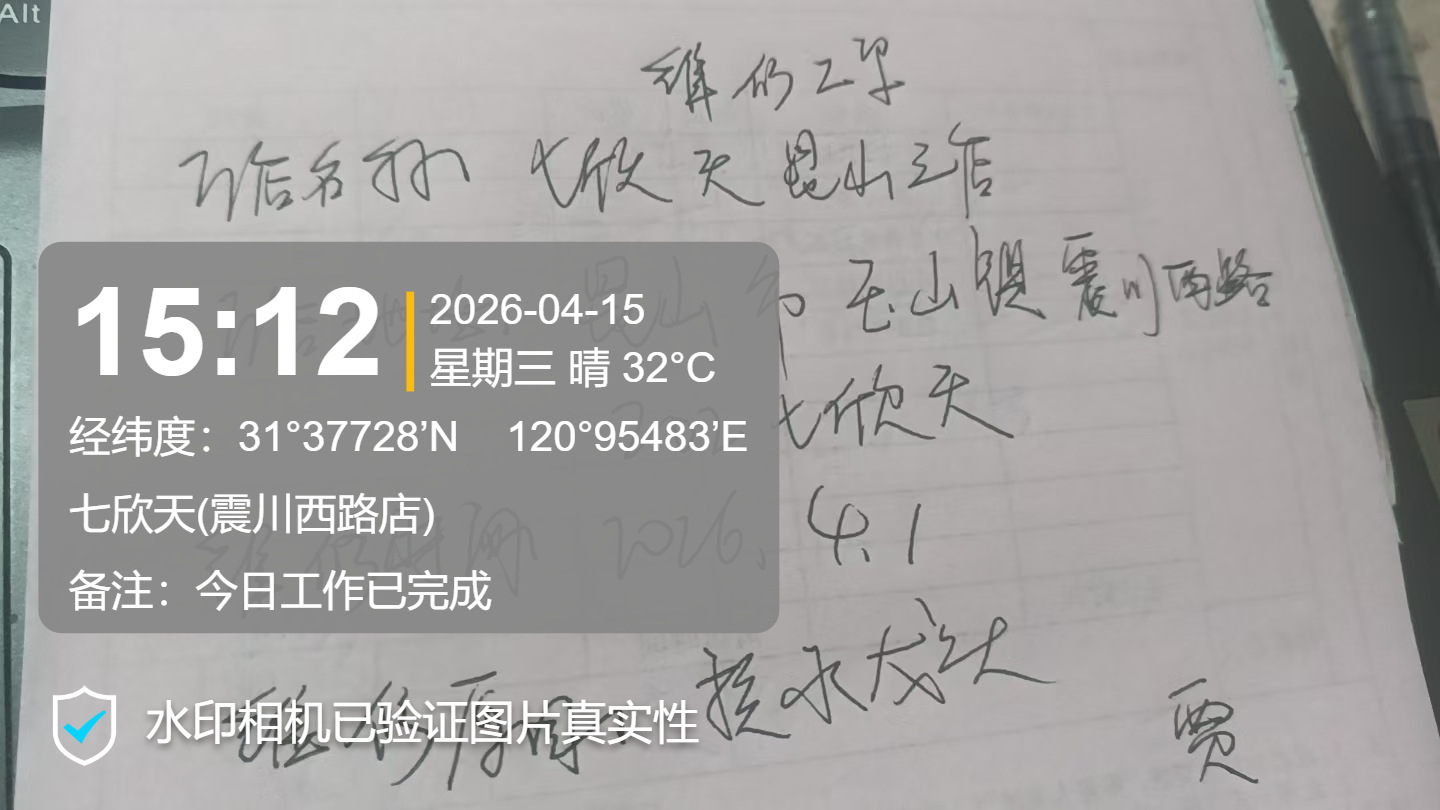 Alt
维修工单
门店名称 七欣天昆山三店
门店地址 昆山市玉山镇震川西路
七欣天
15:12
2026-04-15
星期三 晴 32°C
经纬度：31°37728’N 120°95483’E
七欣天(震川西路店)
备注：今日工作已完成
维修时间 2026.4.1
维修原因 换水龙头
水印相机已验证图片真实性
贾